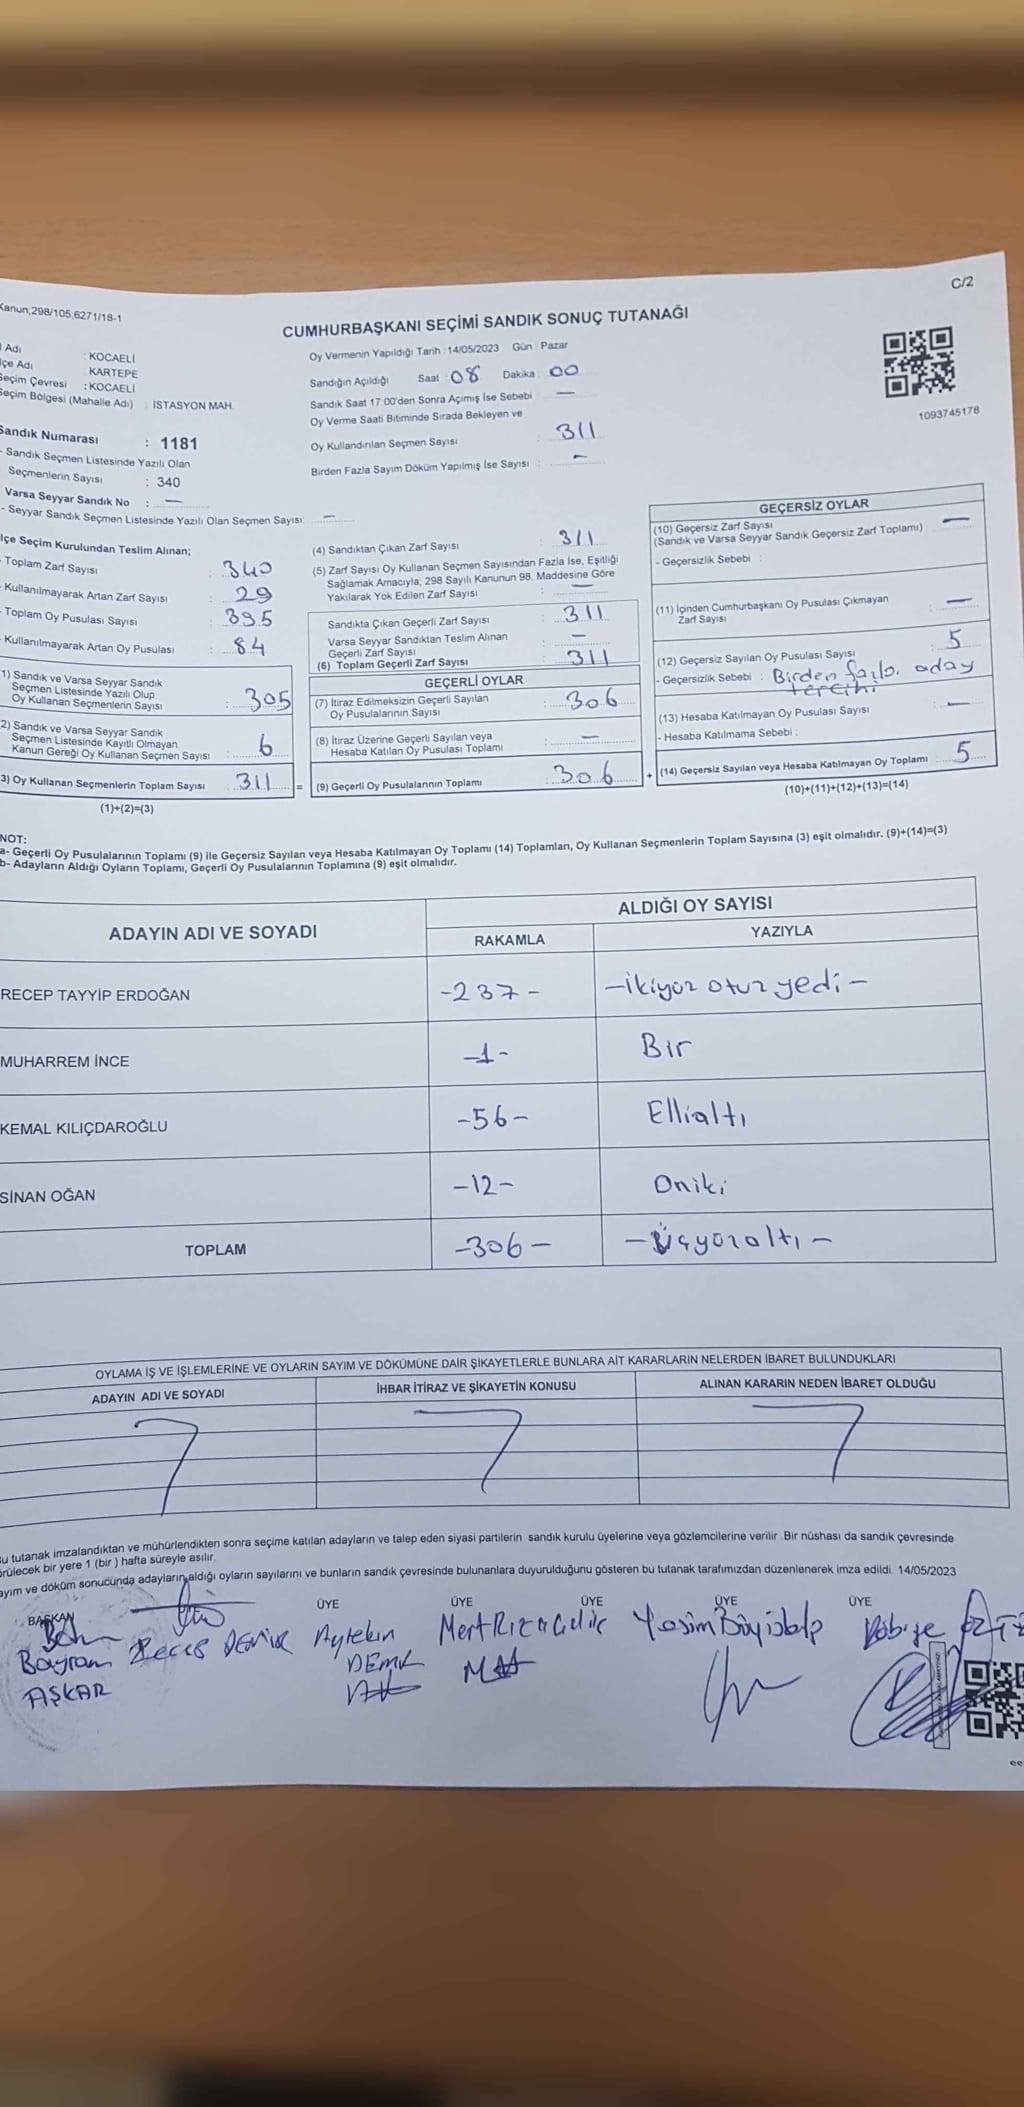 Kanun;298/105;6271/18-1
C/2
CUMHURBAŞKANI SEÇİMİ SANDIK SONUÇ TUTANAĞI
Adı : KOCAELİ
çe Adı : KARTEPE
Seçim Çevresi : KOCAELİ
Seçim Bölgesi (Mahalle Adı) : İSTASYON MAH.
Sandık Numarası : 1181
- Sandık Seçmen Listesinde Yazılı Olan
Seçmenlerin Sayısı : 340
Varsa Seyyar Sandık No : —
- Seyyar Sandık Seçmen Listesinde Yazılı Olan Seçmen Sayısı: —
Oy Vermenin Yapıldığı Tarih : 14/05/2023 Gün : Pazar
Sandığın Açıldığı Saat : 08 Dakika : 00
Sandık Saat 17:00'den Sonra Açımış İse Sebebi : —
Oy Verme Saati Bitiminde Sırada Bekleyen ve
Oy Kullandırılan Seçmen Sayısı : 311
Birden Fazla Sayım Döküm Yapılmış İse Sayısı : —
1093745178
lçe Seçim Kurulundan Teslim Alınan;
- Toplam Zarf Sayısı : 340
- Kullanılmayarak Artan Zarf Sayısı : 29
- Toplam Oy Pusulası Sayısı : 395
- Kullanılmayarak Artan Oy Pusulası : 84
1) Sandık ve Varsa Seyyar Sandık
Seçmen Listesinde Yazılı Olup
Oy Kullanan Seçmenlerin Sayısı : 305
2) Sandık ve Varsa Seyyar Sandık
Seçmen Listesinde Kayıtlı Olmayan
Kanun Gereği Oy Kullanan Seçmen Sayısı : 6
3) Oy Kullanan Seçmenlerin Toplam Sayısı : 311 =
(1)+(2)=(3)
(4) Sandıktan Çıkan Zarf Sayısı : 311
(5) Zarf Sayısı Oy Kullanan Seçmen Sayısından Fazla İse, Eşitliği
Sağlamak Amacıyla; 298 Sayılı Kanunun 98. Maddesine Göre
Yakılarak Yok Edilen Zarf Sayısı : —
Sandıkta Çıkan Geçerli Zarf Sayısı : 311
Varsa Seyyar Sandıktan Teslim Alınan
Geçerli Zarf Sayısı : —
(6) Toplam Geçerli Zarf Sayısı : 311
GEÇERLİ OYLAR
(7) İtiraz Edilmeksizin Geçerli Sayılan
Oy Pusulalarının Sayısı : 306
(8) İtiraz Üzerine Geçerli Sayılan veya
Hesaba Katılan Oy Pusulası Toplamı : —
(9) Geçerli Oy Pusulalarının Toplamı : 306 +
GEÇERSİZ OYLAR
(10) Geçersiz Zarf Sayısı
(Sandık ve Varsa Seyyar Sandık Geçersiz Zarf Toplamı) : —
- Geçersizlik Sebebi :
(11) İçinden Cumhurbaşkanı Oy Pusulası Çıkmayan
Zarf Sayısı : —
(12) Geçersiz Sayılan Oy Pusulası Sayısı : 5
- Geçersizlik Sebebi : Birden fazla aday
tercihi
(13) Hesaba Katılmayan Oy Pusulası Sayısı : —
- Hesaba Katılmama Sebebi :
(14) Geçersiz Sayılan veya Hesaba Katılmayan Oy Toplamı : 5
(10)+(11)+(12)+(13)=(14)
NOT:
a- Geçerli Oy Pusulalarının Toplamı (9) ile Geçersiz Sayılan veya Hesaba Katılmayan Oy Toplamı (14) Toplamları, Oy Kullanan Seçmenlerin Toplam Sayısına (3) eşit olmalıdır. (9)+(14)=(3)
b- Adayların Aldığı Oyların Toplamı, Geçerli Oy Pusulalarının Toplamına (9) eşit olmalıdır.
ADAYIN ADI VE SOYADI ALDIĞI OY SAYISI
RAKAMLA YAZIYLA
RECEP TAYYİP ERDOĞAN -237- -ikiyüz otuz yedi-
MUHARREM İNCE -1- Bir
KEMAL KILIÇDAROĞLU -56- Ellialtı
SİNAN OĞAN -12- Oniki
TOPLAM -306- -Üçyüzaltı-
OYLAMA İŞ VE İŞLEMLERİNE VE OYLARIN SAYIM VE DÖKÜMÜNE DAİR ŞİKAYETLERLE BUNLARA AİT KARARLARIN NELERDEN İBARET BULUNDUKLARI
ADAYIN ADI VE SOYADI İHBAR İTİRAZ VE ŞİKAYETİN KONUSU ALINAN KARARIN NEDEN İBARET OLDUĞU
u tutanak imzalandıktan ve mühürlendikten sonra seçime katılan adayların ve talep eden siyasi partilerin sandık kurulu üyelerine veya gözlemcilerine verilir. Bir nüshası da sandık çevresinde
örülecek bir yere 1 (bir ) hafta süreyle asılır.
ayım ve döküm sonucunda adayların aldığı oyların sayılarını ve bunların sandık çevresinde bulunanlara duyurulduğunu gösteren bu tutanak tarafımızdan düzenlenerek imza edildi. 14/05/2023
BAŞKAN ÜYE ÜYE ÜYE ÜYE ÜYE
Bayram Recep DEMİR Aytekin Mert Rıza Yasin
AŞKAR